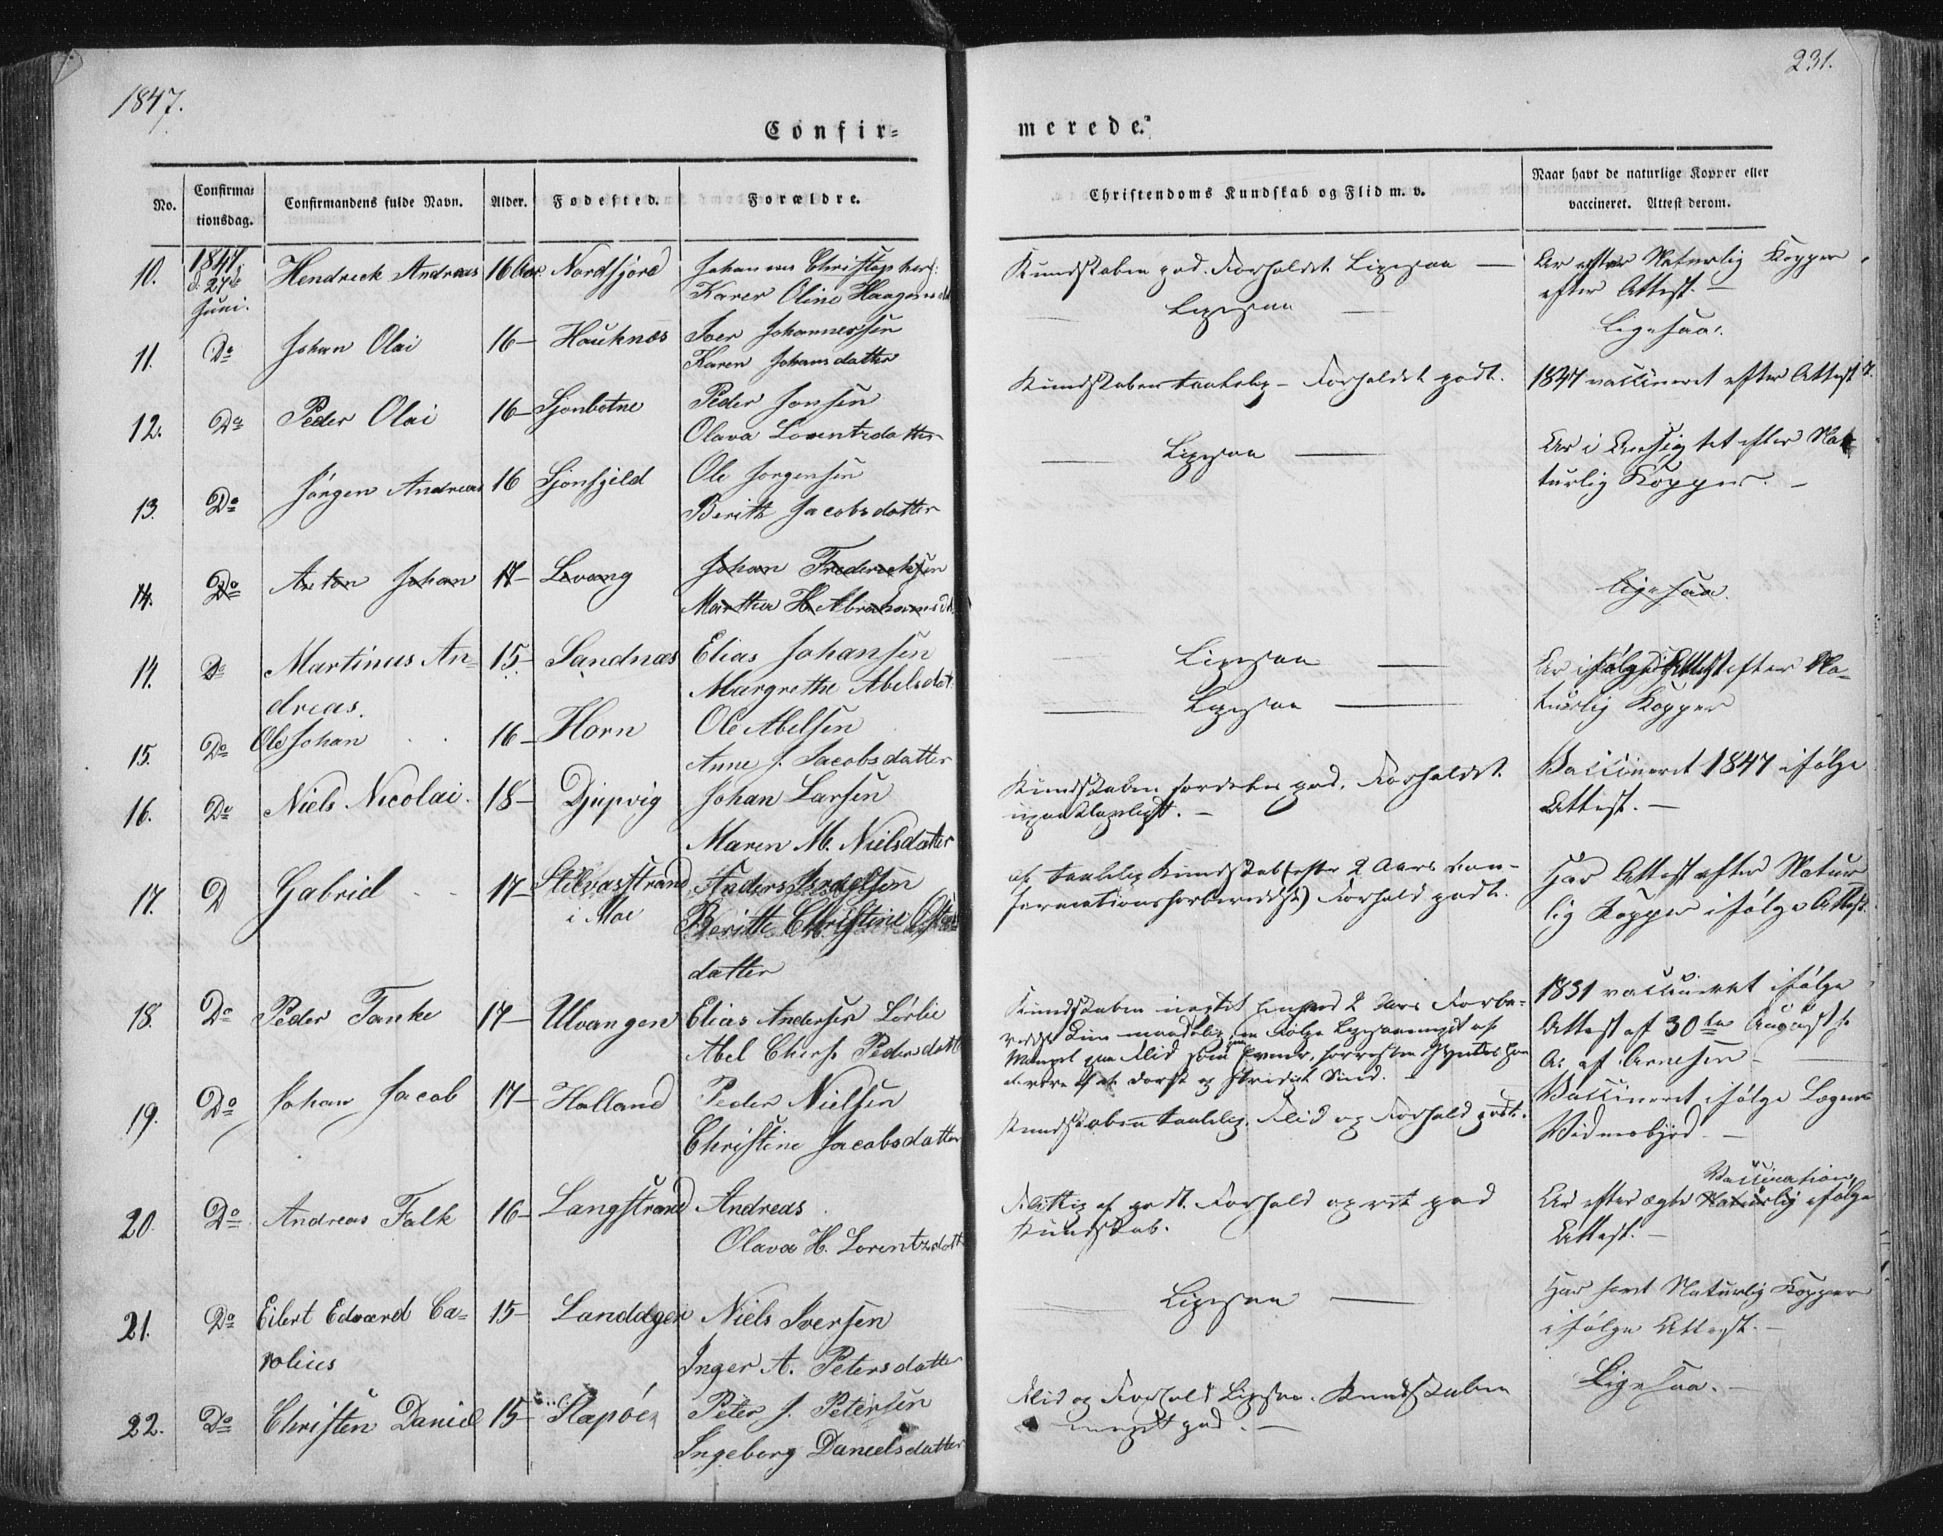 1847.
231.
Confir=
merede.
No.
Confirma=
tionsdag.
Confirmandens fulde Navn.
Alder.
Fødested.
Forældre.
Christendoms Kundskab og Flid m. v.
Naar havt de naturlige Kopper eller
vaccineret. Attest derom.
10. 1847 Hendrick Andreas 16 Aar Nordfjord Johannes
d. 27de
Juni. Karen Oline
Kundskaben god. Forholdet Ligesaa —
Ar efter Naturlig Kopper
efter Attest. —
11. Do Johan Olai 16 — Hauknes Iver Johannessen
Karen Johansdatter
Ligesaa —
Ligesaa.
12. Do Peder Olai 16 — Sjonbotne Peder Jonsen
Olava Lorentzdatter
Kundskaben taalelig — Forholdet godt.
1847 vaccineret efter Attest
13. Do Jörgen Andreas 16 Sjonfjeld Ole Jörgensen
Berith Jacobsdatter
— Ligesaa —
Ar i Ansigtet efter Na-
turlig Kopper. —
14. Do Anton Johan 17 — Levang Johan Fredericksen
Martha H. Abrahamsd.
Ligesaa.
14. Do Martinus An- 15 — Sandnæs Elias Johansen
dreas. Margrethe Abelsdat.
Ligesaa —
Ar ifølge Attest efter Na-
turlig Kopper
15. Do Ole Johan 16 — Horn Ole Abelsen
Anne J. Jacobsdatter
— Ligesaa —
16. Do Niels Nicolai. 18 — Djupvig Johan Larsen
Maren M. Nielsdatter
Kundskaben god. Forholdet
upaaklageligt. —
Vaccineret 1847 ifølge
Attest. —
17. D Gabriel 17 — Anders Israelsen
i Moe Beritte Christine
datter
af taalelig Kundskab (efter 2 Aars Con-
firmationsforberedelse) Forhold godt.
Har Attest efter Natur
lig Kopper ifølge Attest.
18. Do Peder Tanke 17 — Ulvangen Elias Andersen Lørlie
Abel Chersh. Pedersdatt
1831 vaccineret ifølge
Attest af 30te August
af Arnesen —
Mangel paa Flid som
19. Do Johan Jacob 17 — Holland Peder Nielsen
Christine Jacobsdatter
Kundskaben taalelig. Flid og Forhold godt.
Vaccineret ifølge
Widnesbyrd. —
20. Do Andreas Falk 16 — Langstrand Andreas
Olava H. Lorentzdatt
Flittig af godt Forhold og ret god
Kundskab.
Vaccination,
Ar efter ægte Naturlig ifølge
Attest. —
21. Do Eilert Edvard Ca- 15 — Niels Iversen
rolius Inger A. Petersdatter
Ligesaa —
Har havt Naturlig Kopper
ifølge Attest. —
22. Do Christen Daniel 15 — Slapöen Peter J. Petersen
Ingeborg Danielsdatter
Flid og Forhold Ligesaa. Kundskaben
meget god. —
Ligesaa. —